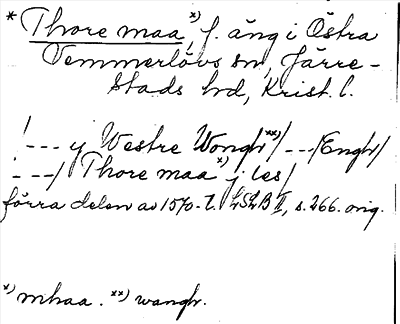 * Thore maa x), f. äng i Östra
Vemmerlövs sn, Järre-
stads hd, Krist. l.
/--- y Westre Wongh xx)/ ---/Enghr/
---/ Thore maa x) j les/
förra delen av 1570-t. LSLB II, s. 266. orig.
x) mhaa. xx) wanghr.